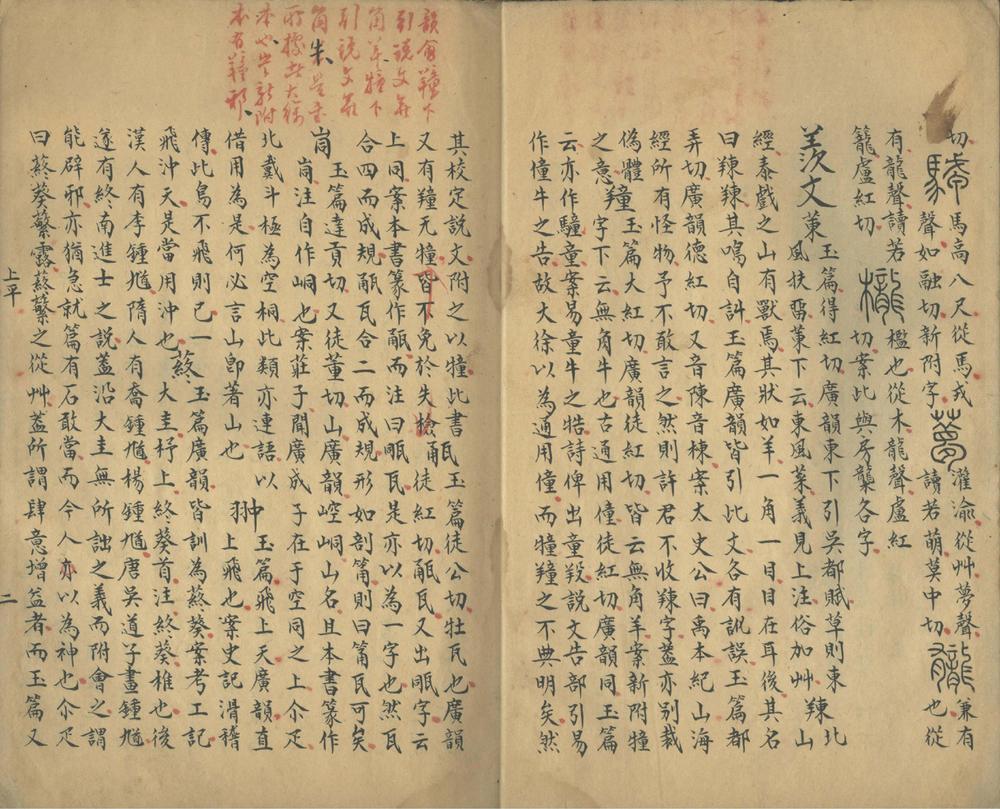 切 馬高八尺從馬戎
聲如融切新附字 灌渝從艸夢聲
讀若萌莫中切 兼有也從
有龍聲讀若 檻也從木龍聲盧紅
籠盧紅切 切案此與房櫳各字
羨文 菄 玉篇得紅切廣韻東下引吳都賦草則東
風扶留菄下云東風菜義見上注俗加艸 䍶 北山
經泰戲之山有獸焉其狀如羊一角一目目在耳後其名
曰䍶䍶其鳴自訆玉篇廣韻皆引此文各有訛誤玉篇都
弄切廣韻德紅切又音陳音棟案太史公曰禹本紀山海
經所有怪物予不敢言之然則許君不收䍶字蓋亦別裁
偽體 㼿 玉篇大紅切廣韻徒紅切皆云無角羊案新附犝
之意 字下云無角牛也古通用僮徒紅切廣韻同玉篇
云亦作 童案易童牛之牿詩俾出童羖說文告部引易
作僮牛之告故大徐以為通用僮而犝 之不典明矣然
韻會 下
引說文無
角羊犝下
引說文無
角牛是書
所據非大徐
本也 新附
本有 邪
其校定說文附之以犝此書 玉篇徒公切牡瓦也廣韻
又有 无犝皆不免於失檢 徒紅切 瓦又出 字云
上同案本書篆作 而注曰 瓦是亦以為一字也然瓦
合四而成規 瓦合二而成規形如剖筩則曰筩瓦可矣
峝 玉篇達貢切又徒董切山廣韻崆峒山名且本書篆作
峝注自作峒也案莊子聞廣成子在于空同之上尒疋
北戴斗極為空桐此類亦連語以 翀 玉篇飛上天廣韻直
借用為是何必言山卽著山也 上飛也案史記滑稽
傳此鳥不飛則已一 玉篇廣韻皆訓為蔠葵案考工記
飛沖天是當用沖也 蔠 大圭杼上終葵首注終葵椎也後
漢人有李鍾馗隋人有喬鍾馗楊鍾馗唐吳道子畫鍾馗
遂有終南進士之說蓋沿大圭無所詘之義而附會之謂
能辟邪亦猶急就篇有石敢當而今人亦以為神也尒疋
曰蔠葵蘩露蔠蘩之從艸蓋所謂肆意增益者而玉篇又
上平 二